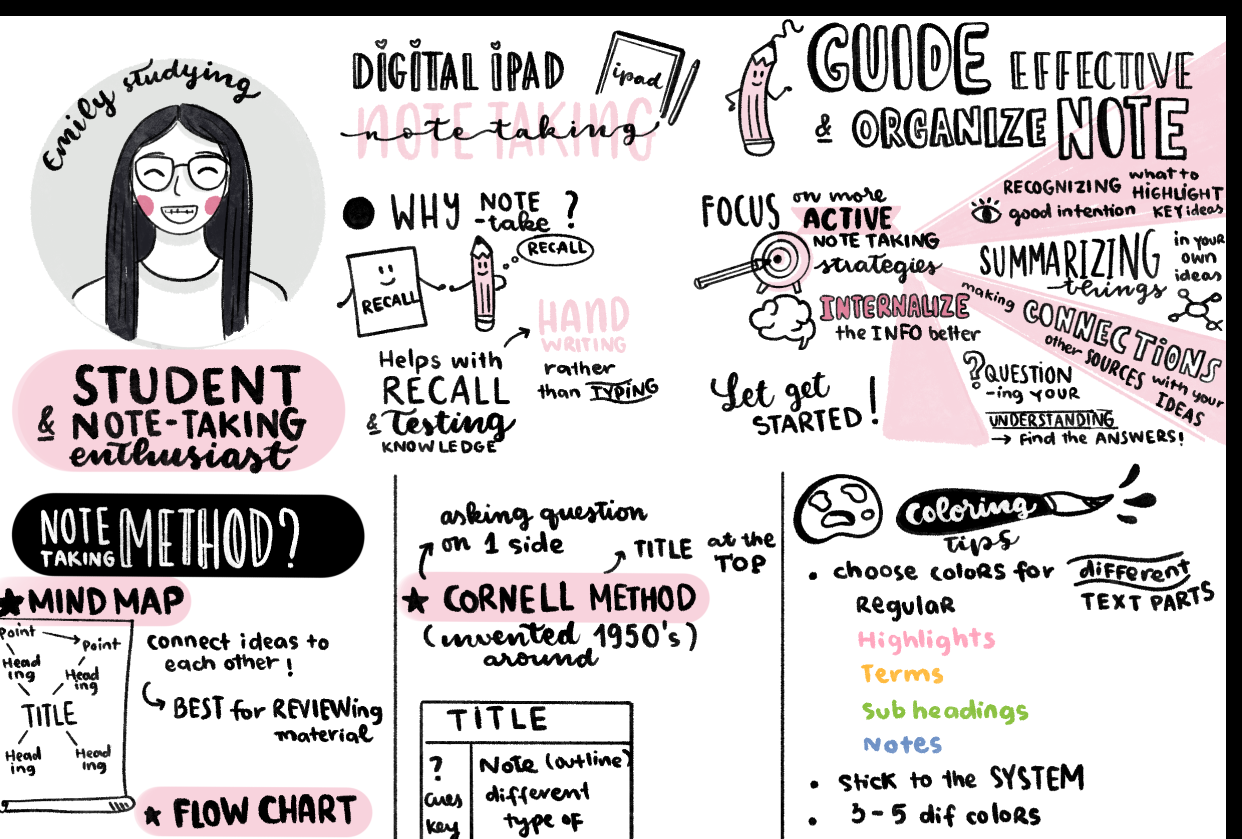 Emily studying
STUDENT
& NOTE-TAKING
enthusiast
DIGITAL IPAD
NOTE TAKING
note taking
ipad
WHY NOTE
-take ?
RECALL
RECALL
HAND
WRITING
rather
than TYPING
Helps with
RECALL
& Testing
KNOWLEDGE
GUIDE EFFECTIVE
& ORGANIZE NOTE
FOCUS on more
ACTIVE
NOTE TAKING
strategies
INTERNALIZE
the INFO better
Let get
STARTED!
RECOGNIZING what to
HIGHLIGHT
good intention KEY ideas
SUMMARIZING
things
in your
own
ideas
making CONNECTIONS
other SOURCES with your
IDEAS
? QUESTION
-ing YOUR
UNDERSTANDING
→ Find the ANSWERS!
NOTE
TAKING METHOD?
★ MIND MAP
Point → Point
Head
ing
Head
ing
TITLE
Head
ing
Head
ing
connect ideas to
each other!
BEST for REVIEWing
material
★ FLOW CHART
asking question
on 1 side
TITLE at the
TOP
★ CORNELL METHOD
(invented 1950's)
around
TITLE
?
cues
key
Note (outline)
different
type of
coloring
tips
• choose coloRS for different
TEXT PARTS
RegulaR
Highlights
Terms
Sub headings
Notes
• Stick to the SYSTEM
• 3-5 dif coloRs